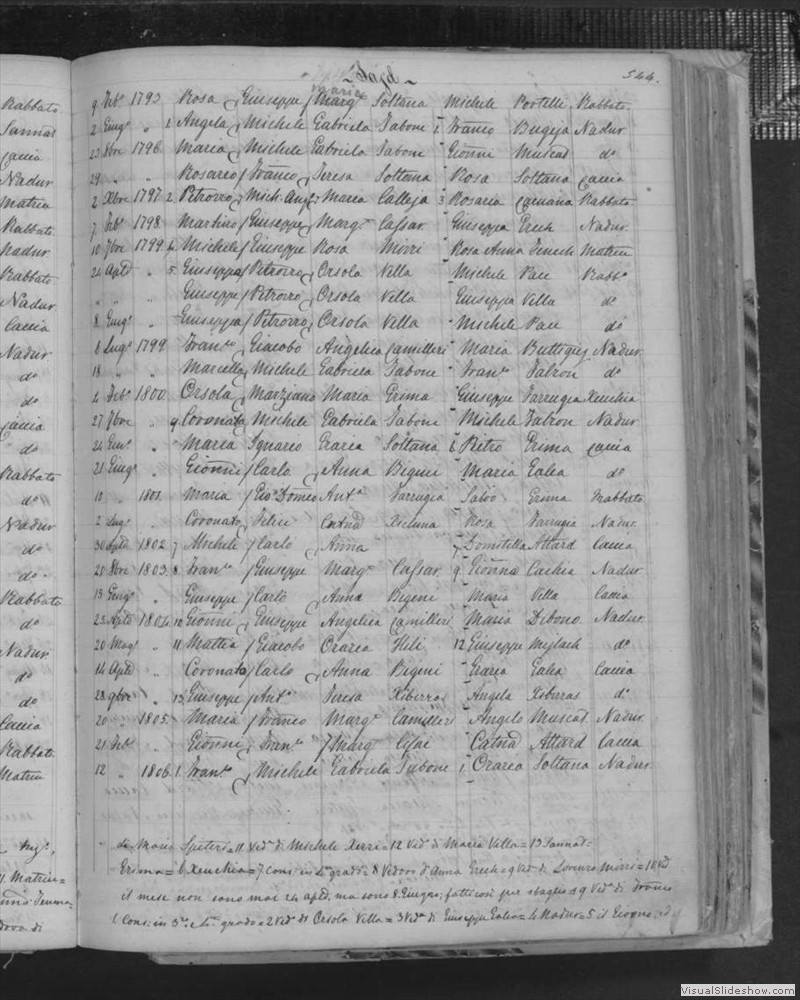 Rabbato
Sannat
Caccia
Nadur
Matrice
Rabbato
Nadur
Rabbato
Nadur
Caccia
Nadur
do
do
Caccia
do
Rabbato
do
Nadur
do
do
Rabbato
do
Nadur
do
do
Caccia
Rabbato
Matrice
544.
9 Feb. 1793 Rosa Giuseppe Marg.a Soltana Michele Portelli Rabbato
2 Giug. " 1 Angela Michele Gabriela Tabone 1 Franco Bugeja Nadur
23 8bre 1796 Maria Michele Gabriela Tabone Gionni Muscat do
29 " Rosario Franco Teresa Soltana Rosa Soltana Caccia
2 Xbre 1797 2 Petrorro Mich. Ang. Maria Calleja 3 Rosaria Rabbato
7 Feb. 1798 Martino Giuseppe Marg.a Cassar Giuseppa Grech Nadur
10 7bre 1799 4 Michele Giuseppe Rosa Mirri Rosa Anna Zenech Matrice
24 Aple " 5 Giuseppa Petrorro Orsola Villa Michele Pace Rabbo
" " Giuseppe Petrorro Orsola Villa Giuseppa Villa do
8 Giug. " Giuseppa Petrorro Orsola Villa Michele Pace do
6 Lug. 1799 Fran.co Giacobo Angelica Camilleri Maria Buttigieg Nadur
18 " " Marcello Michele Gabriela Tabone Fran.co Falzon do
4 Feb. 1800 Orsola Marziano Maria Grima Giuseppe Farrugia Xeuchia
27 7bre " 9 Coronato Michele Gabriela Tabone Michele Falzon Nadur
24 Gen. " Maria Ignazio Grazia Soltana 6 Pietro Grima Caccia
21 Giug. " Gionni Carlo Anna Bigeni Maria Galea do
10 " 1801 Maria Gio Domco Ant.a Farrugia Salvo Grima Rabbato
2 Lug. " Coronato Felice Catna Xicluna Rosa Farrugia Nadur
30 Aple 1802 7 Michele Carlo Anna 7 Domitilla Attard Caccia
20 8bre 1803 8 Fran.co Giuseppe Marg.a Cassar 9 Gionna Cachia Nadur
13 Giug. Giuseppe Carlo Anna Bigeni Maria Villa Caccia
25 Aple 1804 10 Gionni Giuseppe Angelica Camilleri Maria Debono Nadur
20 Mag. " 11 Mattia Giacobo Orazia Heli 12 Giuseppe Mejlach do
14 Aple " Coronato Carlo Anna Bigeni Grazia Galea Caccia
28 9bre " 13 Giuseppe Ant.o Teresa Xiberras Angela Xiberras do
20 " 1805 Maria Franco Marg.a Camilleri Angelo Muscat Nadur
21 Feb. " Gionni Fran.co Marg.a Catna Attard Caccia
12 " 1806 1 Fran.co Michele Gabriela Tabone 1 Orazia Soltana Nadur
di Mario Spiteri = 11 Ved.o di Michele Xerri = 12 Ved.o di Maria Villa = 13 Sannat =
Grima = 6 Xeuchia = 7 Cons. in 4.o grado = 8 Vedovo d'Anna Grech = 9 Ved. di Lorenzo Mirri = 10
il mese non sono mai 24 aple, ma sono 8 Giugno; fatti così per sbaglio = 9 Ved.a di Franco
1 Cons. in 3.o e 4.o grado = 2 Ved.o di Orsola Villa = 3 Ved.a di Giuseppe Galea = 4 Nadur = 5 il Giorno, ed
VisualSlideshow.com